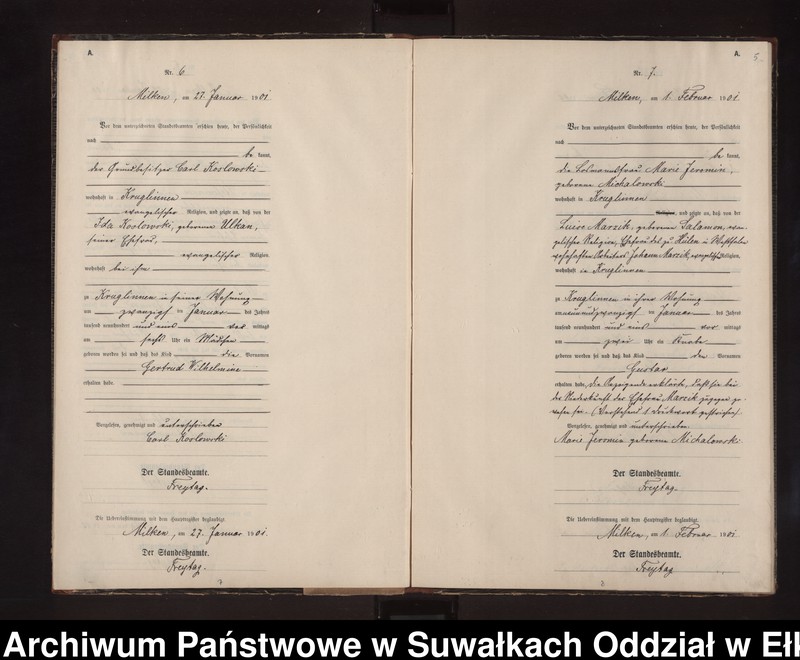 A.
Nr. 6
Milken, am 27. Januar 1901.
Vor dem unterzeichneten Standesbeamten erschien heute, der Persönlichkeit
nach
be kannt,
der Grundbesitzer Carl Koslowski
wohnhaft in Kruglinnen
evangelischer Religion, und zeigte an, daß von der
Ida Koslowski, geborene Ulkan,
seiner Ehefrau,
evangelischer Religion,
wohnhaft bei ihm
zu Kruglinnen in seiner Wohnung
am zwanzigsten Januar des Jahres
tausend neunhundert und eins vor mittags
um sechs Uhr ein Mädchen
geboren worden sei und daß das Kind die Vornamen
Gertrud Wilhelmine
erhalten habe.
Vorgelesen, genehmigt und unterschrieben
Carl Koslowski
Der Standesbeamte.
Freytag.
Die Uebereinstimmung mit dem Hauptregister beglaubigt.
Milken, am 27. Januar 1901.
Der Standesbeamte.
Freytag.
A. 5
Nr. 7.
Milken, am 1. Februar 1901
Vor dem unterzeichneten Standesbeamten erschien heute, der Persönlichkeit
nach
be kannt,
die Losmannsfrau Marie Jeromin,
geborene Michalowski
wohnhaft in Kruglinnen
Religion, und zeigte an, daß von der
Luise Marzik, geborenen Salamon, evan-
gelischer Religion, Ehefrau des zu in Westfalen
wohnhaften Arbeiters Johann Marzik, evangelischer Religion,
wohnhaft in Kruglinnen
zu Kruglinnen in ihrer Wohnung
am neunundzwanzigsten Januar des Jahres
tausend neunhundert und eins vor mittags
um zwei Uhr ein Knabe
geboren worden sei und daß das Kind den Vornamen
Gustav
erhalten habe, die Anzeigende erklärte, daß sie bei
der Niederkunft der Ehefrau Marzik zugegen ge-
wesen sei. (Vorstehend 1 Druckwort gestrichen).
Vorgelesen, genehmigt und unterschrieben.
Marie Jeromin geborene Michalowski.
Der Standesbeamte.
Freytag.
Die Uebereinstimmung mit dem Hauptregister beglaubigt.
Milken, am 1. Februar 1901
Der Standesbeamte.
Freytag
Archiwum Państwowe w Suwałkach Oddział w Ełk